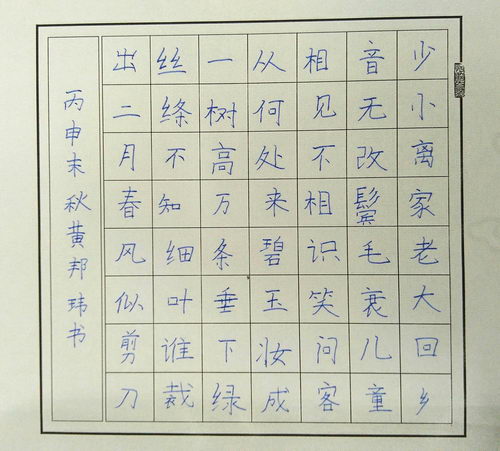 少小离家老大回乡
音无改鬓毛衰儿童
相见不相识笑问客
从何处来碧玉妆成
一树高万条垂下绿
丝绦不知细叶谁裁
出二月春风似剪刀
丙申末秋黄邦玮书